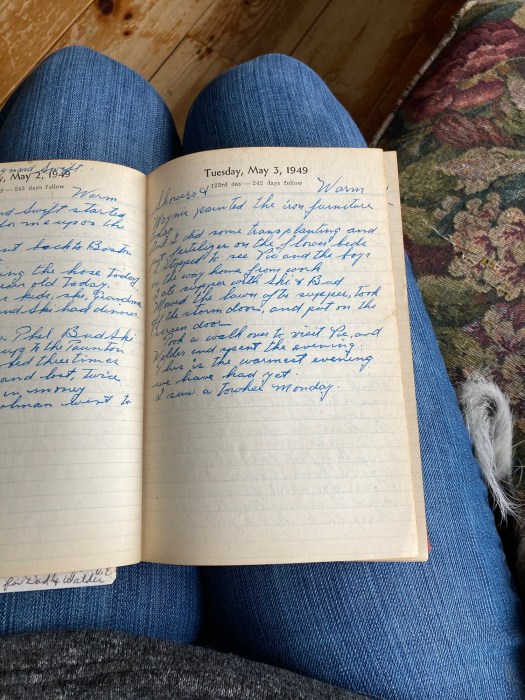 ynard Swift
, May 2, 1949
y — 243 days follow
Warm
nd Swift started
ent back to Boston
ing the hose today
ear old today.
r kids, she, Grandma
and Ski had dinner
Phil Bud Ski
up to the Taunton
bed three times
and lost twice
in money
ohman went to
Tuesday, May 3, 1949
123rd day — 242 days follow
Showers & Warm
painted the iron furniture
today
Dad & I did some transplanting and
put fertilizer on the flower beds
I stopped to see Vic and the boys
on the way home from work
ate supper with Ski & Bud
Mowed the lawn after supper, took
off the storm door, and put on the
screen door
Took a walk over to visit Vic and
Walder and spent the evening.
This is the warmest evening
we have had yet.
I saw a towhee Monday.
for Dad & Walder